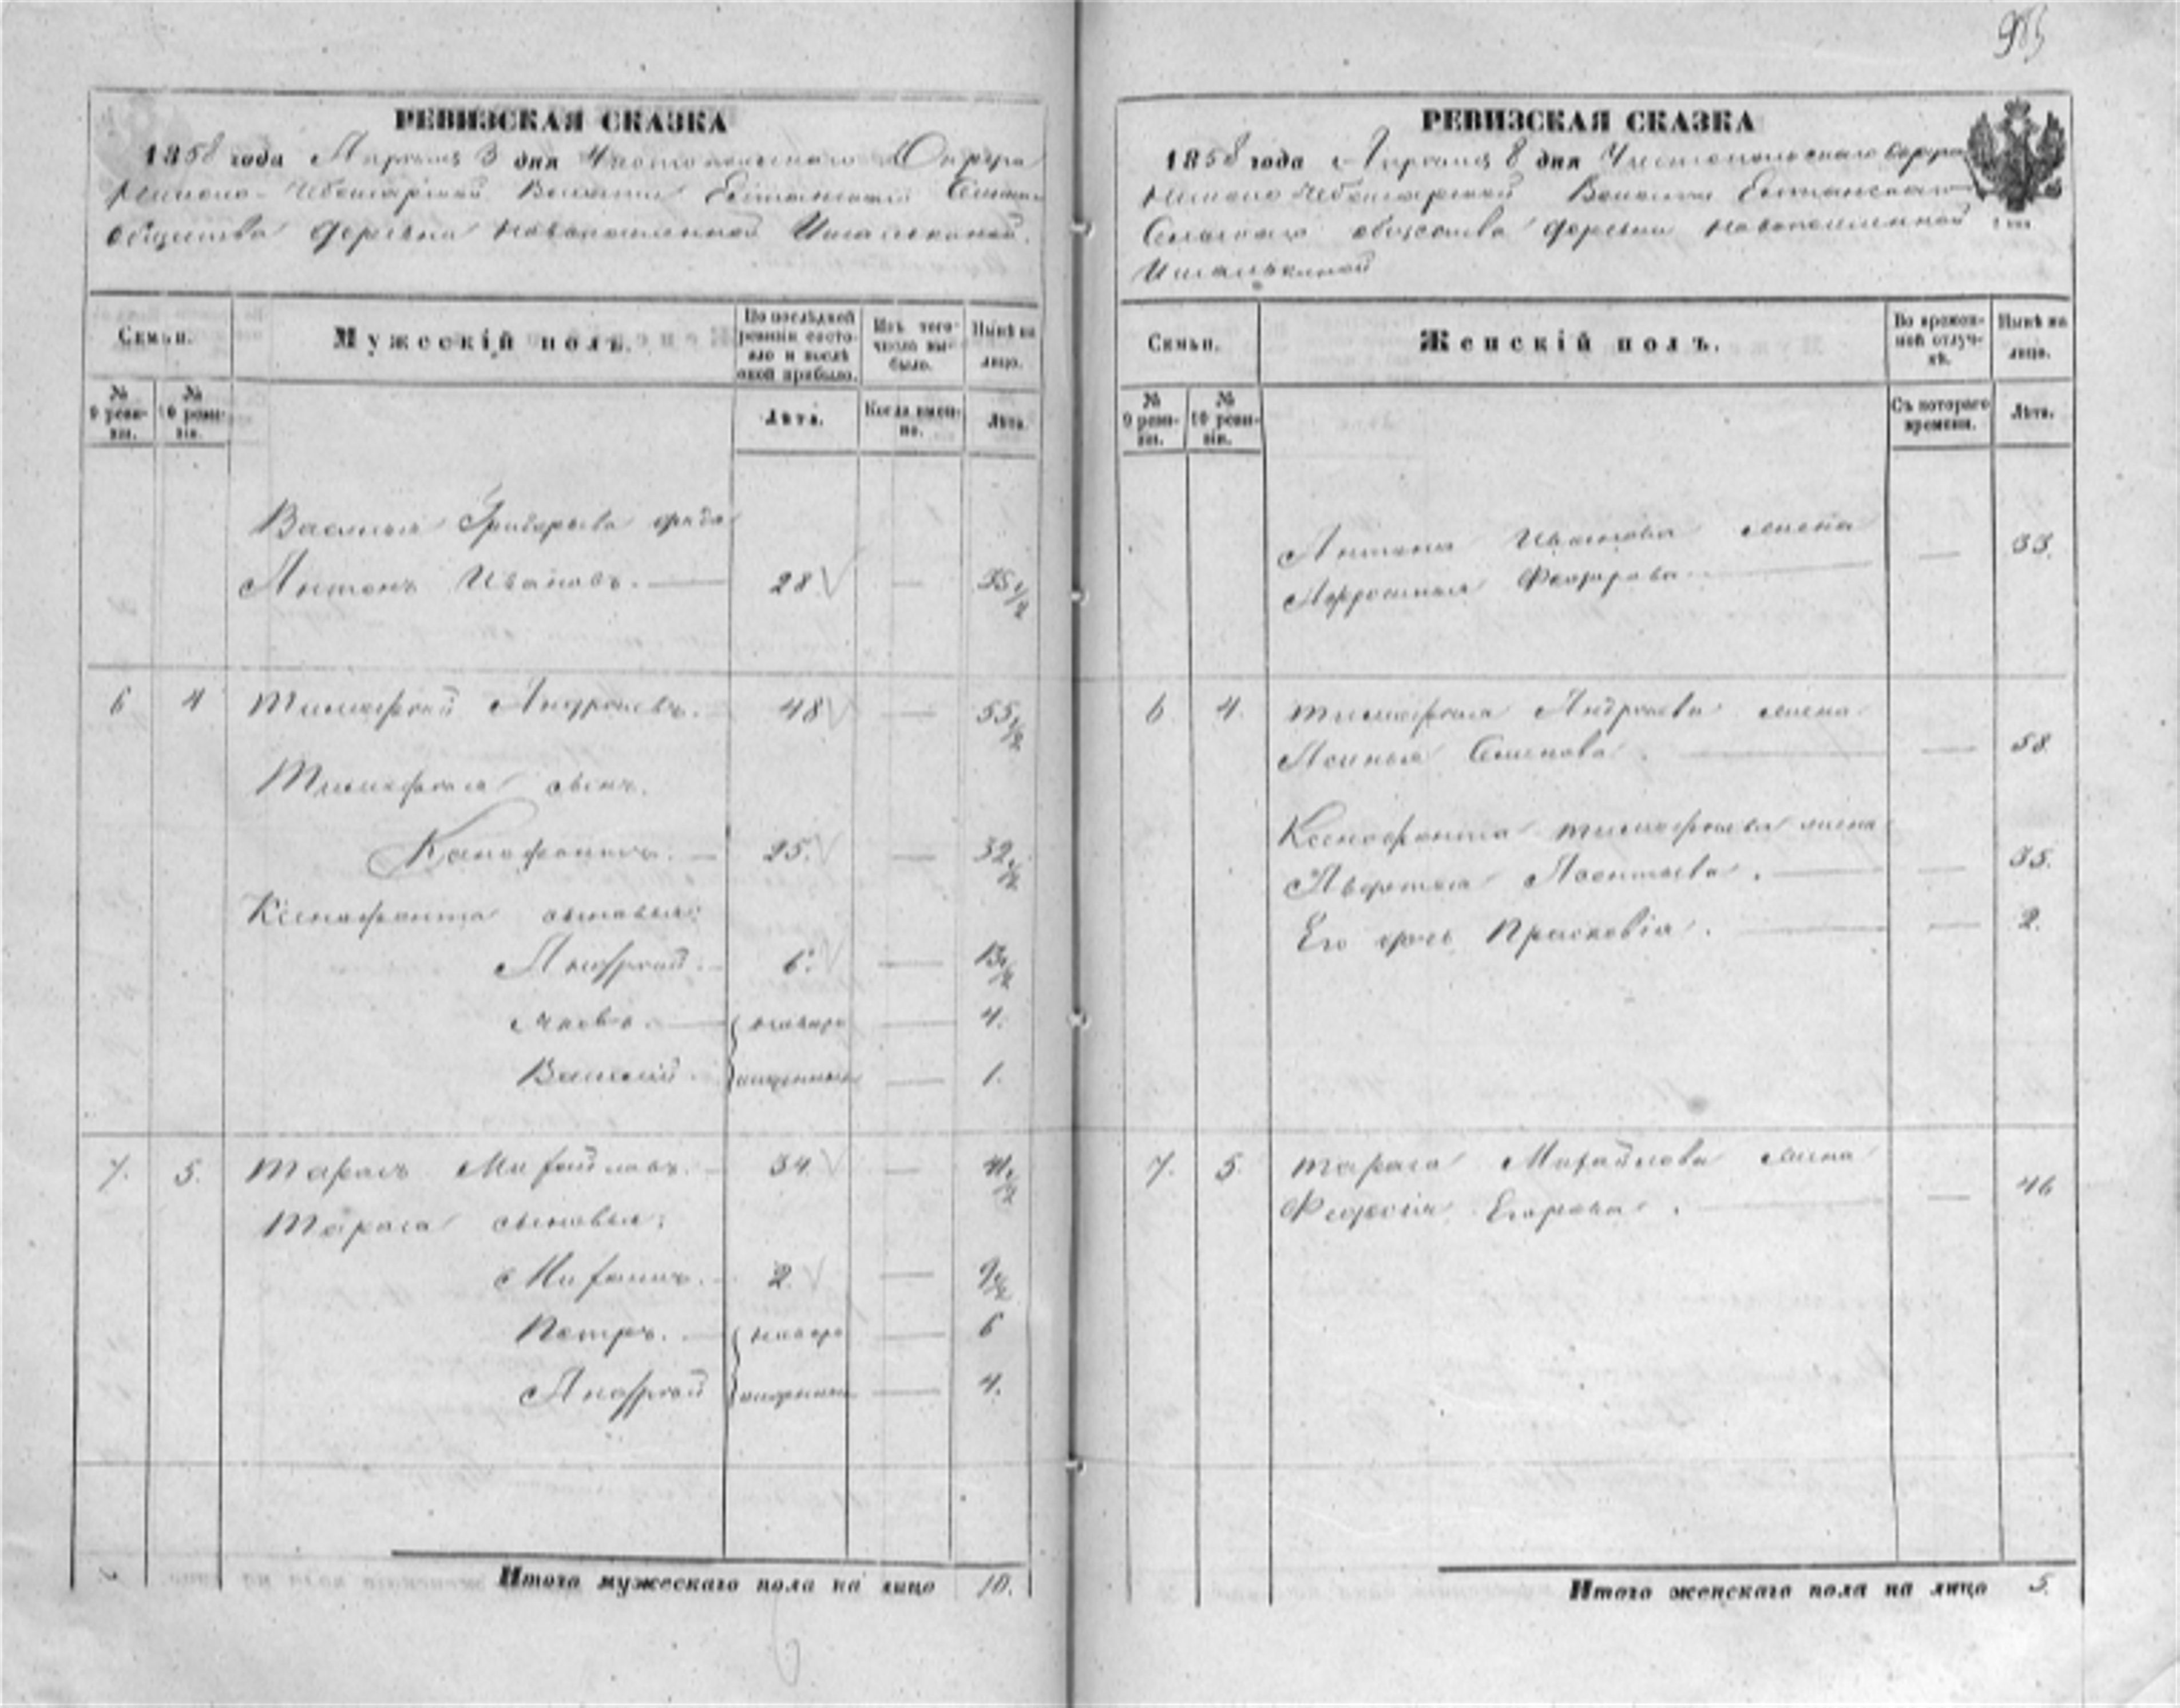 985
РЕВИЗСКАЯ СКАЗКА
1858 года Апреля 3 дня Чистопольскаго Округа
Волости Сельскаго
общества деревни Новопошленной Ишалькиной.
Семьи.
Мужескій полъ.
По послѣдней ревизіи состояло и послѣ оной прибыло.
Изъ того числа выбыло.
Нынѣ на лицо.
№ 9 ревизіи.
№ 10 ревизіи.
Лѣта.
Когда именно.
Лѣта.
Василья Григорьева дядя
Антонъ Ивановъ. — 28 — 35 1/2
6 4 Тимофей Андреевъ. 48 — 55 1/2
Тимофея сынъ.
Ксенофонтъ. — 25. — 32 1/2
Ксенофонта сыновья:
Андрей. 6. — 13 1/2
Яковъ. — новоро — 4.
Василий. жденные — 1.
7. 5. Тарасъ Михайловъ. 34. — 41 1/2
Тараса сыновья:
Михаилъ. 2. — 9 1/2
Петръ. — новоро — 6
Андрей жденные — 4.
Итого мужескаго пола на лицо 10.
РЕВИЗСКАЯ СКАЗКА
1858 года Апреля 8 дня Чистопольскаго округа
Волости
Сельскаго общества деревни Новопошленной
Ишалькиной
Семьи.
Женскій полъ.
Во временной отлучкѣ.
Нынѣ на лицо.
№ 9 ревизіи.
№ 10 ревизіи.
Съ котораго времени.
Лѣта.
Антона Иванова жена
Афросинья Федорова. — — 33.
6 4. Тимофея Андреева жена
Аксинья Семенова. — — 58.
Ксенофонта Тимофеева жена
Авдотья Леонтьева. — — 35.
Его дочь Прасковія. — — 2.
7. 5. Тараса Михайлова жена
Федосія Егорова. — — 46
Итого женскаго пола на лицо 5.